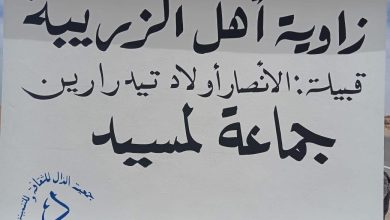 زاوية أهل الزريبة
قبيلة: الأنصار أولاد تيدرارين
جماعة لمسيد
جمعية الدال للثقافة و